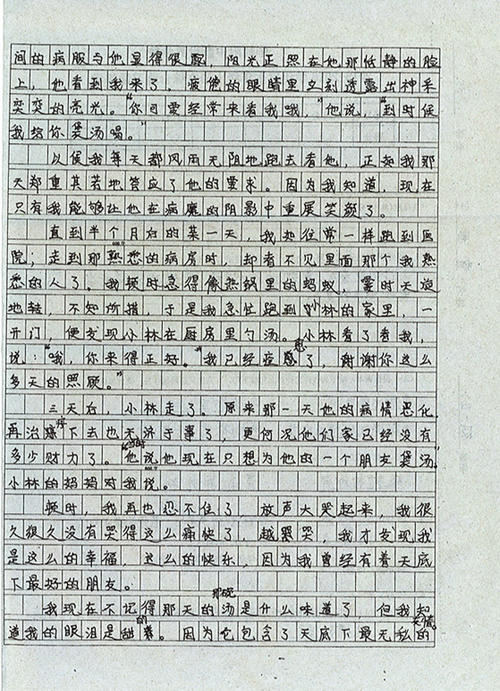 间的病服与他显得很配，阳光正照在他那恬静的脸
上，他看到我来了，疲倦的眼睛里立刻透露出神采
奕奕的亮光。“你可要经常来看我哦，”他说，“到时候
我给你煲汤喝。”
以候我每天都风雨无阴地跑去看他，正如我那
天郑重其若地答应了他的要求。因为我知道，现在
只有我能够让他在病魔的阴影中重展笑颜了。
直到半个月后的某一天，我如往常一样跑到医
院；走到那熟悉的病房时，却看不见里面那个我熟
悉的人了。我顿时急得像热锅里的蚂蚁，霎时天旋
地转，不知所措，于是我急忙跑到小林的家里，一
开门，便发现小林在厨房里勺汤。小林看了看我，
说：“哦，你来得正好。”“我已经痊愈了，谢谢你这么
多天的照顾。”
三天后，小林走了。原来那一天他的病情恶化，
再治疗下去也无济于事了，更何况他们家已经没有
多少财力了。“当时他说他现在只想为他的一个朋友煲汤。”
小林的妈妈对我说。
顿时，我再也忍不住了，放声大哭起来，我很
久很久没有哭得这么痛快了，越哭哭，我才发现我
是这么的幸福，这么的快乐，因为我曾经有着天底
下最好的朋友。
我现在不记得那天的那碗汤是什么味道了，但我知
道我的眼泪是甜的。因为它包含了天底下最无私的友情。